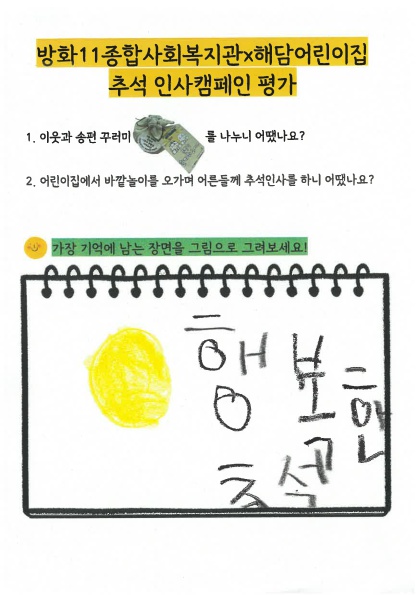 방화11종합사회복지관x해담어린이집
추석 인사캠페인 평가
1. 이웃과 송편 꾸러미 를 나누니 어땠나요?
2. 어린이집에서 바깥놀이를 오가며 어른들께 추석인사를 하니 어땠나요?
가장 기억에 남는 장면을 그림으로 그려보세요!
행복한
추석